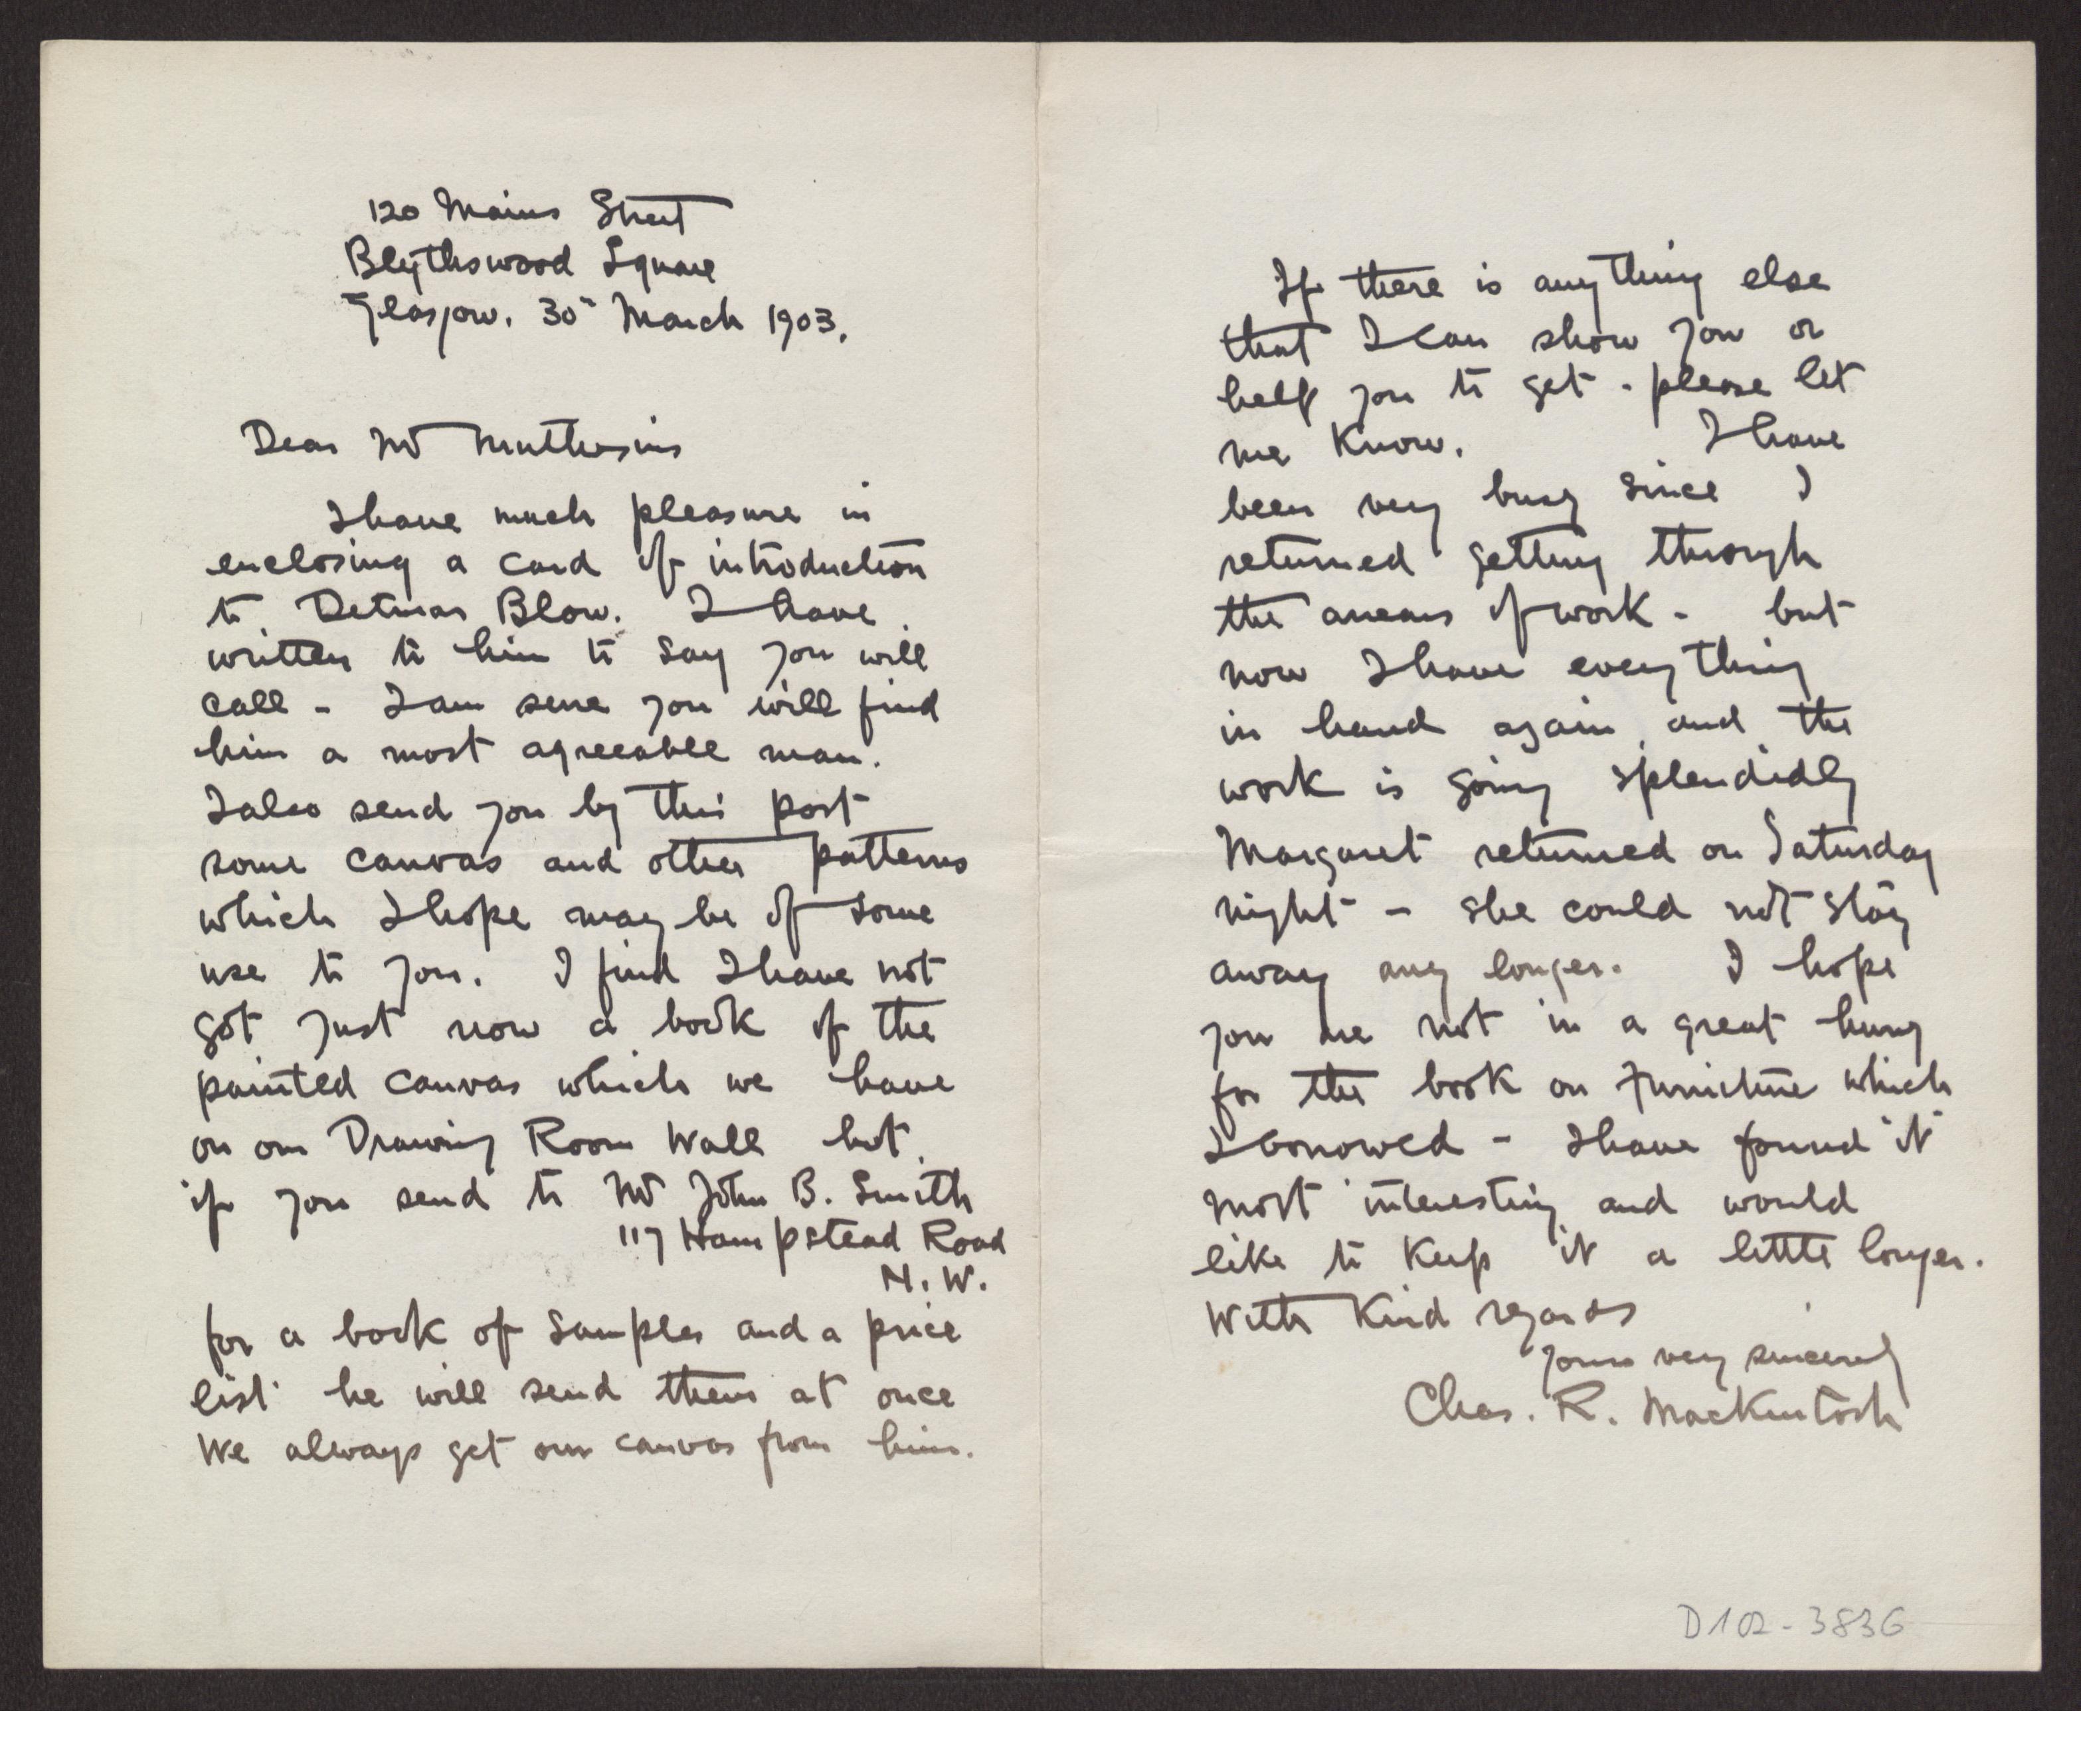 120 Mains Street
Blythswood Square
Glasgow. 30th March 1903.
Dear Mr Muthesius
I have much pleasure in
enclosing a card of introduction
to Detmar Blow. I have
written to him to say you will
call - I am sure you will find
him a most agreeable man.
I also send you by this post
some canvas and other patterns
which I hope may be of some
use to you. I find I have not
got just now a book of the
painted canvas which we have
on our Drawing Room Wall but
if you send to Mr John B. Smith
117 Hampstead Road
N.W.
for a book of samples and a price
list he will send them at once
We always get our canvas from him.
If there is anything else
that I can show you or
help you to get - please let
me know. I have
been very busy since I
returned getting through
the arrears of work - but
now I have everything
in hand again and the
work is going splendidly
Margaret returned on Saturday
night - she could not stay
away any longer. I hope
you are not in a great hurry
for the book on Furniture which
I borrowed - I have found it
most interesting and would
like to keep it a little longer.
With kind regards
Yours very sincerely
Chas. R. Mackintosh
D102-3836